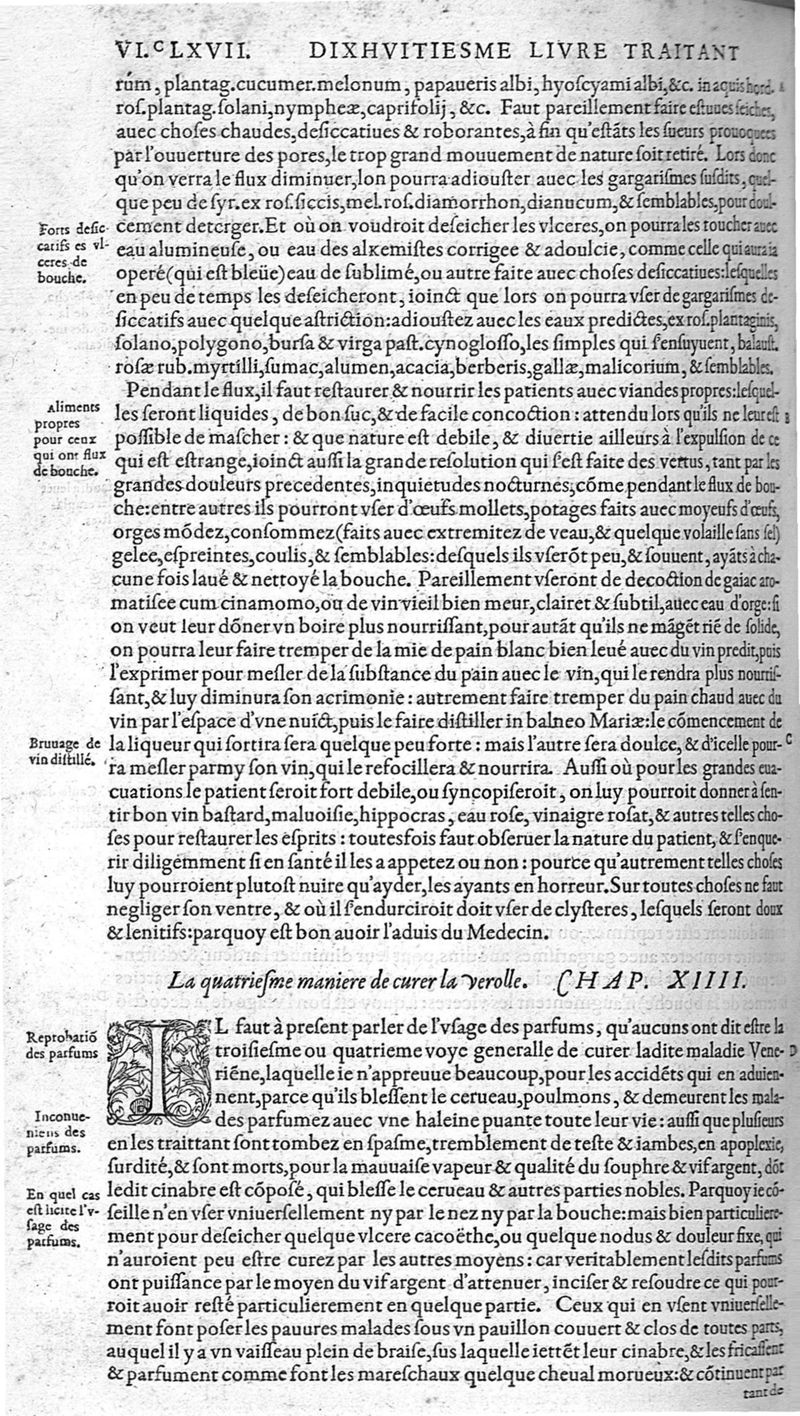 VI.ᶜLXVII. DIXHVITIESME LIVRE TRAITANT
rúm, plantag.cucumer.melonum, papaueris albi, hyoſcyami albi, &c. in aquis hord.
roſ.plantag.ſolani, nympheæ, caprifolij, &c. Faut pareillement faire eſtuues ſeiches,
auec choſes chaudes, deſiccatiues & roborantes, à fin qu'eſtãts les ſueurs prouoquees
par l'ouuerture des pores, le trop grand mouuement de nature ſoit retiré. Lors donc
qu'on verra le flux diminuer, lon pourra adiouſter auec les gargariſmes ſuſdits, quel-
que peu de ſyr.ex roſ.ſiccis, mel.roſ.diamorrhon, dianucum, & ſemblables, pour doul-
cement deterger. Et où on voudroit deſeicher les vlceres, on pourra les toucher auec
eau alumineuſe, ou eau des alxemiſtes corrigee & adoulcie, comme celle qui aura ia
operé (qui eſt bleüe) eau de ſublimé, ou autre faite auec choſes deſiccatiues: leſquelles
en peu de temps les deſeicheront, ioinct que lors on pourra vſer de gargariſmes de-
ſiccatifs auec quelque aſtriction: adiouſtez auec les eaux predictes, ex roſ.plantaginis,
ſolano, polygono, burſa & virga paſt.cynogloſſo, les ſimples qui ſ'enſuyuent, balauſt.
roſæ rub.myrtilli, ſumac, alumen, acacia, berberis, gallæ, malicorium, & ſemblables.
Forts deſic-
catifs es vl-
ceres de
bouche.
Pendant le flux, il faut reſtaurer & nourrir les patients auec viandes propres: leſquel-
les ſeront liquides, de bon ſuc, & de facile concoction: attendu lors qu'ils ne leur eſt B
poſſible de maſcher: & que nature eſt debile, & diuertie ailleurs à l'expulſion de ce
qui eſt eſtrange, ioinct auſſi la grande reſolution qui ſ'eſt faite des vertus, tant par les
grandes douleurs precedentes, inquietudes nocturnes, cõme pendant le flux de bou-
che: entre autres ils pourront vſer d'œufs mollets, potages faits auec moyeufs d'œufs,
orges mõdez, conſommez (faits auec extremitez de veau, & quelque volaille ſans ſel)
gelee, eſpreintes, coulis, & ſemblables: deſquels ils vſerõt peu, & ſouuent, ayãts à cha-
cune fois laué & nettoyé la bouche. Pareillement vſeront de decoction de gaiac aro-
matiſee cum cinamomo, ou de vin vieil bien meur, clairet & ſubtil, auec eau d'orge: ſi
on veut leur dõner vn boire plus nourriſſant, pour autãt qu'ils ne mãgẽt riẽ de ſolide,
on pourra leur faire tremper de la mie de pain blanc bien leué auec du vin predit, puis
l'exprimer pour meſler de la ſubſtance du pain auec le vin, qui le rendra plus nourriſ-
ſant, & luy diminura ſon acrimonie: autrement faire tremper du pain chaud auec du
vin par l'eſpace d'vne nuict, puis le faire diſtiller in balneo Mariæ: le cõmencement de
la liqueur qui ſortira ſera quelque peu forte: mais l'autre ſera doulce, & d'icelle pour- C
ra meſler parmy ſon vin, qui le refocillera & nourrira. Auſſi où pour les grandes eua-
cuations le patient ſeroit fort debile, ou ſyncopiſeroit, on luy pourroit donner à ſen-
tir bon vin baſtard, maluoiſie, hippocras, eau roſe, vinaigre roſat, & autres telles cho-
ſes pour reſtaurer les eſprits: toutesfois faut obſeruer la nature du patient, & ſ'enque-
rir diligemment ſi en ſanté il les a appetez ou non: pource qu'autrement telles choſes
luy pourroient plutoſt nuire qu'ayder, les ayants en horreur. Sur toutes choſes ne faut
negliger ſon ventre, & où il ſ'endurciroit doit vſer de clyſteres, leſquels ſeront doux
& lenitifs: parquoy eſt bon auoir l'aduis du Medecin.
Aliments
propres
pour ceux
qui ont flux
de bouche.
Bruuage de
vin diſtillé.
La quatrieſme maniere de curer la verolle. CHAP. XIIII.
IL faut à preſent parler de l'vſage des parfums, qu'aucuns ont dit eſtre la
troiſieſme ou quatrieme voye generalle de curer ladite maladie Vene- D
riẽne, laquelle ie n'appreuue beaucoup, pour les accidẽts qui en aduien-
nent, parce qu'ils bleſſent le cerueau, poulmons, & demeurent les mala-
des parfumez auec vne haleine puante toute leur vie: auſſi que pluſieurs
en les traittant ſont tombez en ſpaſme, tremblement de teſte & iambes, en apoplexie,
ſurdité, & ſont morts, pour la mauuaiſe vapeur & qualité du ſouphre & vifargent, dõt
ledit cinabre eſt cõpoſé, qui bleſſe le cerueau & autres parties nobles. Parquoy ie cõ-
ſeille n'en vſer vniuerſellement ny par le nez ny par la bouche: mais bien particuliere-
ment pour deſeicher quelque vlcere cacoëthe, ou quelque nodus & douleur fixe, qui
n'auroient peu eſtre curez par les autres moyens: car veritablement leſdits parfums
ont puiſſance par le moyen du vifargent d'attenuer, inciſer & reſoudre ce qui pour-
roit auoir reſté particulierement en quelque partie. Ceux qui en vſent vniuerſelle-
ment font poſer les pauures malades ſous vn pauillon couuert & clos de toutes parts,
auquel il y a vn vaiſſeau plein de braiſe, ſus laquelle iettẽt leur cinabre, & les fricaſſent
& parfument comme font les mareſchaux quelque cheual morueux: & cõtinuent par
tant de
Reprobatiõ
des parfums
Inconue-
niens des
parfums.
En quel cas
eſt licite l'v-
ſage des
parfums.